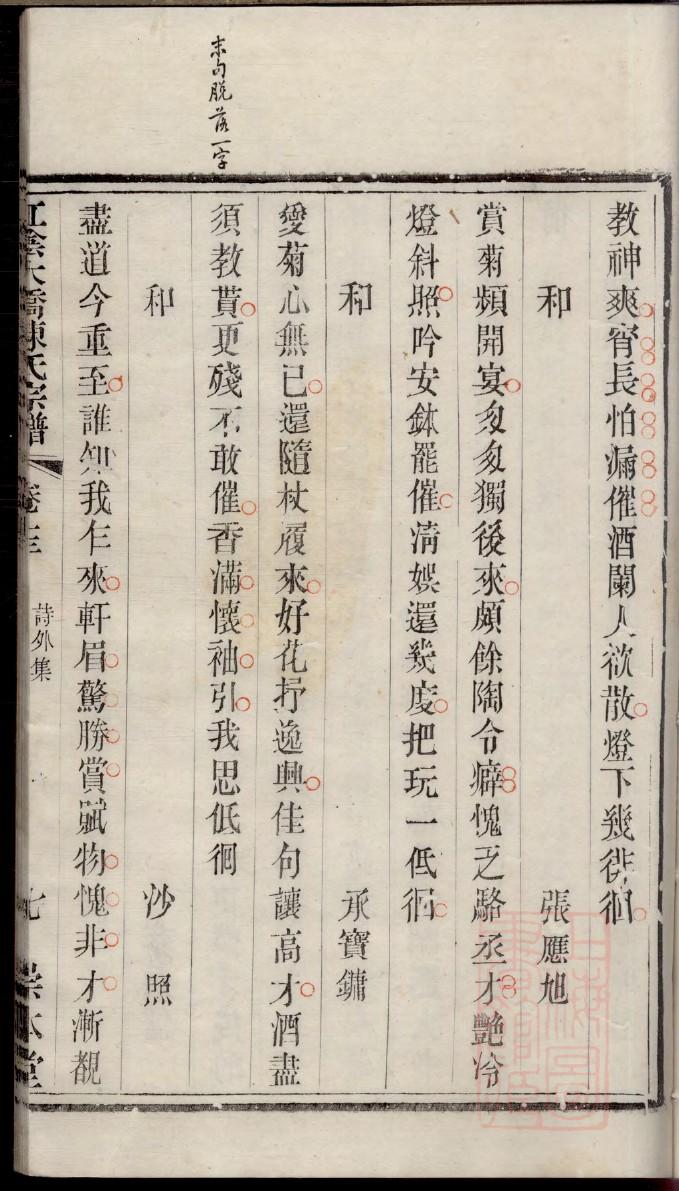 末句脫落一字
教神爽宵長怕漏催酒闌人欲散燈下幾徘徊
和　張應旭
賞菊頻開宴匆匆獨後來頗餘陶令癖愧乏駱丞才艷冷
燈斜照吟安鉢罷催清娛還幾度把玩一低徊
和　承寶鏞
愛菊心無已還隨杖履來好花抒逸興佳句讓高才酒盡
須教貰更殘不敢催香滿懷袖引我思低徊
和　沙照
盡道今重至誰知我乍來軒眉驚勝賞賦物愧非才漸覩
江陰大橋陳氏宗譜　卷十三　詩外集　七　崇本堂